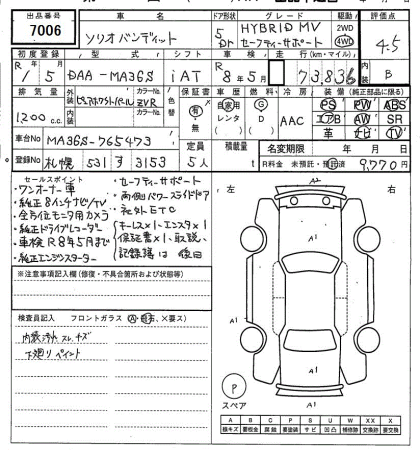 出品番号 車名 ドア形状 グレード 駆動 評価点
7006 ソリオバンディット 5 Dr HYBRID MV セーフティーサポート 2WD 4WD 4.5
初度登録 型式 シフト 車検 走行(km・マイル) 内装
R 1/5 DAA-MA36S iAT R 8年5月 73,836 B
排気量 外装色 カラーNo. 色替 保証書 車歴 燃料 冷房 装備(純正部品に限る)
1200 c.c. ZVR 有・無 自家用 レンタ G D AAC PS PW ABS
エアB AW SR
革 ナビ TV
車台No MA36S-765473 定員 積載量 名変期限 年 月 日
登録No 札幌 531 す 3153 5人 t R料金 未預託・預託済 9,770円
セールスポイント
・ワンオーナー車
・純正8インチナビ/TV
・全方位モニタ用カメラ
・純正ドライブレコーダー
・車検R8年5月まで
・純正エンジンスターター
・セーフティーサポート
・両側パワースライドドア
・社外ETC
キーレス×1、エンスタ×1
保証書×1、取説、
記録簿は後日
※注意事項記入欄(修復・不具合箇所および状態等)
検査員記入 フロントガラス
内装汚れ スレ キズ
下廻り ペイント
左 A2 右
A1
A1
A1
A1
P
スペア
A B W C P S U W X XX X
線キズ 要板金 腐蝕 要塗装 サビ 凹凸 補修跡 交換跡 要交換